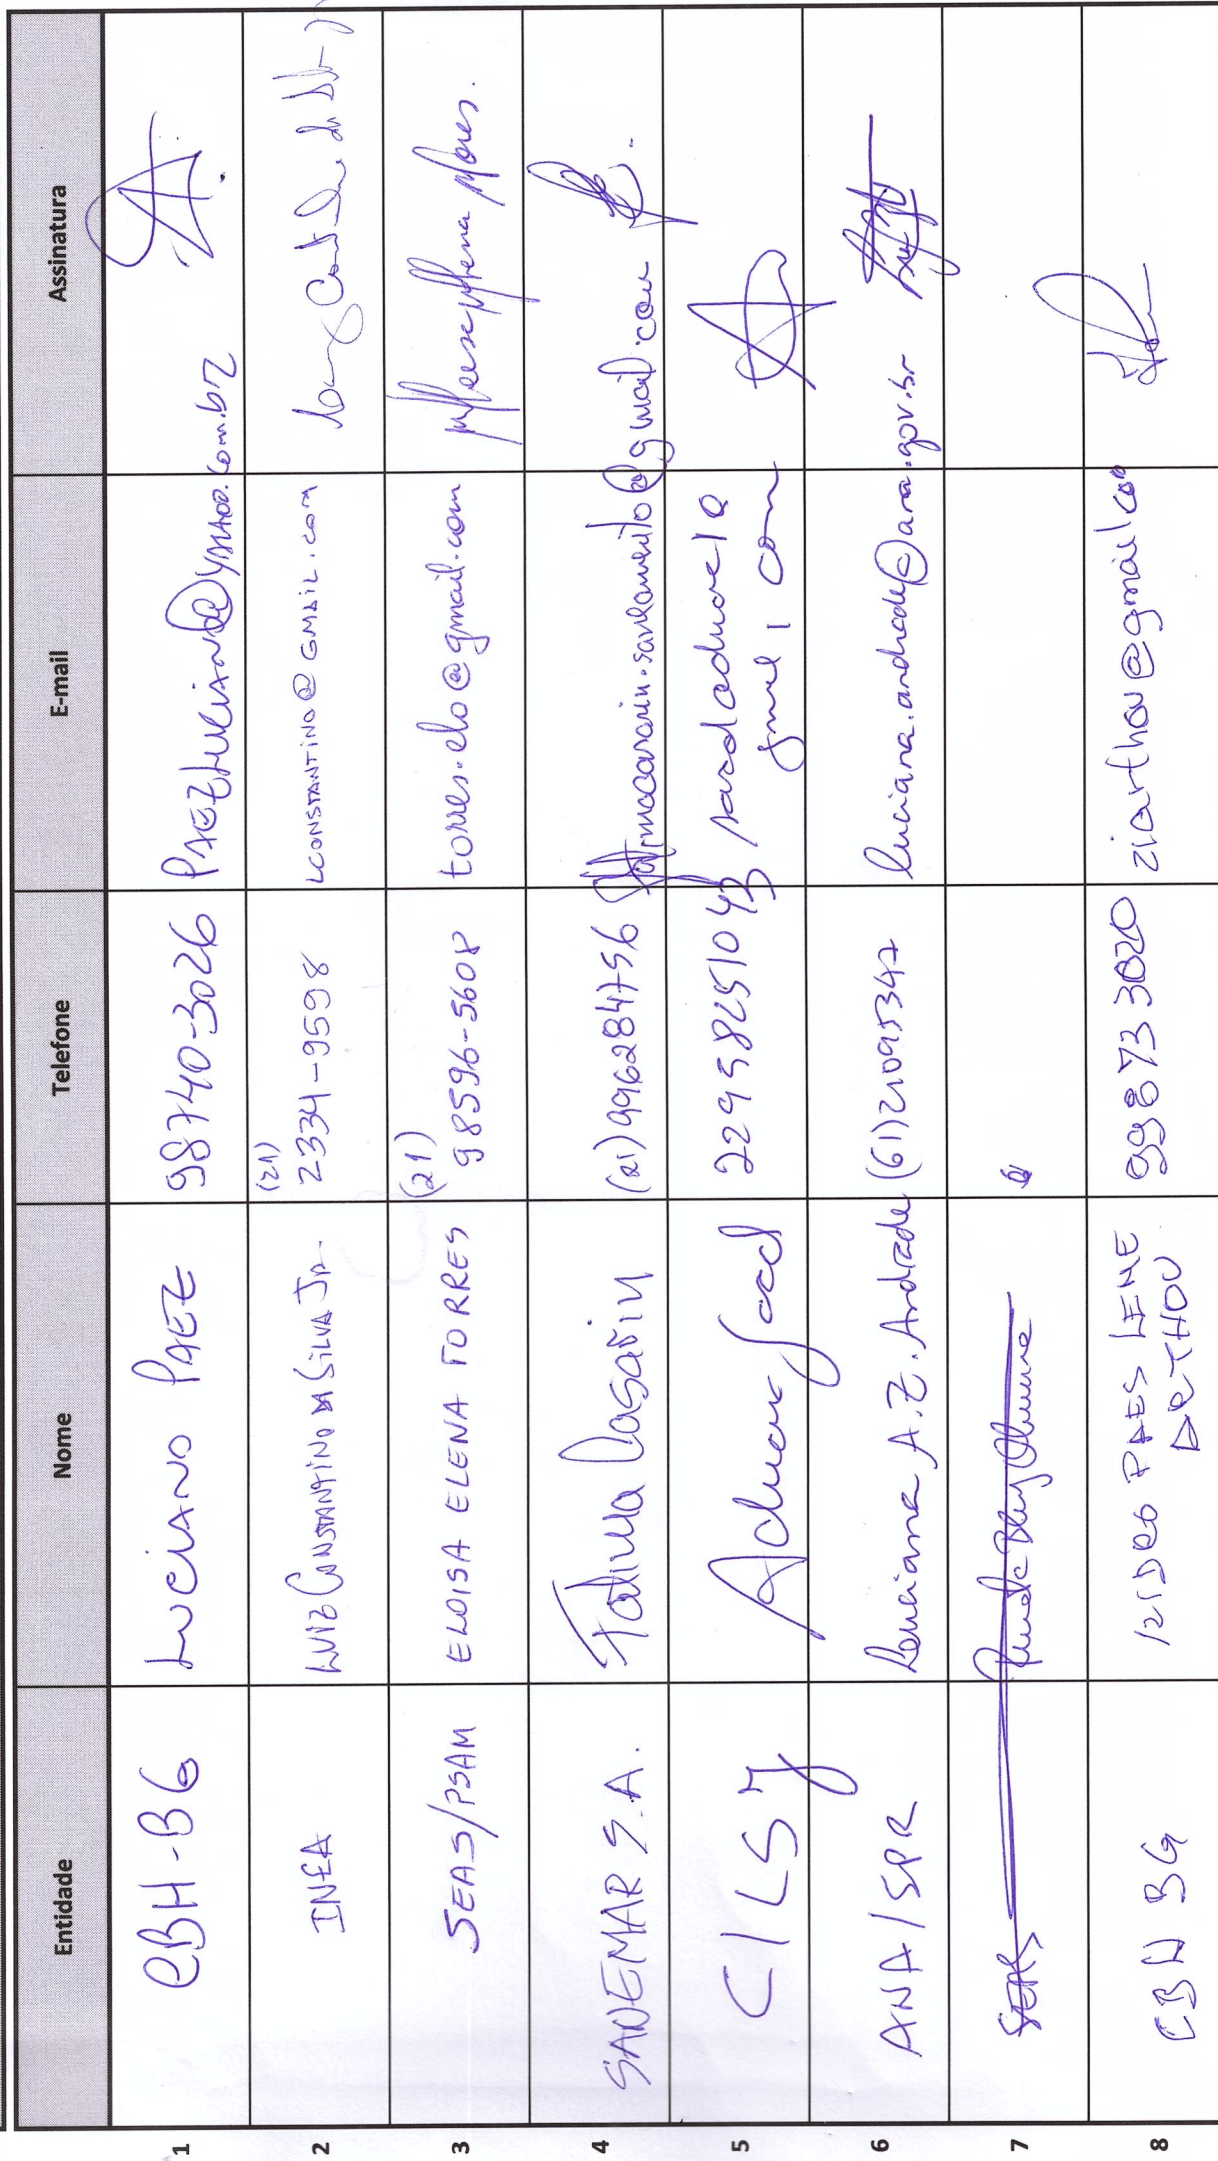 Entidade Nome Telefone E-mail Assinatura
1 CBH-BG LUCIANO PAEZ 98740-3026 PAEZLUCIANO@YAHOO.com.br
2 INEA LUIZ CONSTANTINO DA SILVA Jr. (21) 2334-9598 LCONSTANTINO@GMAIL.COM
3 SEAS/PSAM ELOISA ELENA TORRES (21) 98596-5608 torres.elo@gmail.com
4 SANEMAR S.A. Fatima Casarin (21) 996284756
5 CILSJ Adriana Saad
6 ANA/SPR Luciana A.Z. Andrade (61) 21095347 luciana.andrade@ana.gov.br
7 SEAS
8 CBH BG IZIDRO PAES LEME ARTHOU 99873 3020 ziarthou@gmail.com